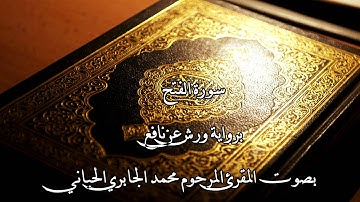 سورة الفتح
برواية ورش عن نافع
بصوت المقرئ المرحوم محمد الجابري الحياني